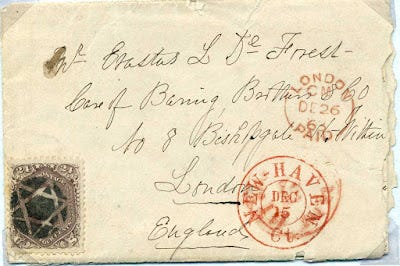 Mr. Erastus L De Forest-
Care of Baring Brothers & Co
No 8 Bishopsgate St. Within
London
England.
LONDON
DE 26
PAID
NEW-HAVEN
DEC
15
Ct.
24
24